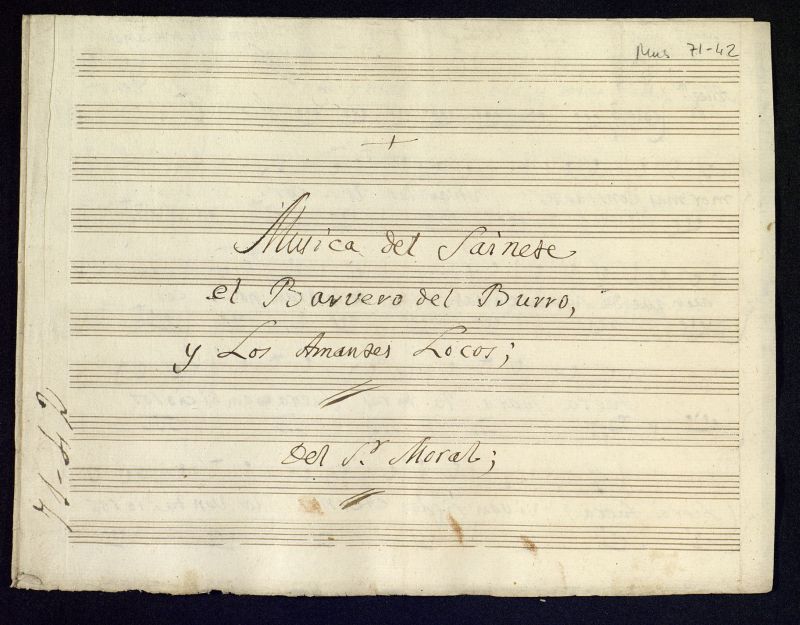 Mus 71-42
+
Musica del Sainete
el Barvero del Burro,
y Los Amantes Locos;
Del S.r Moral;
71-42